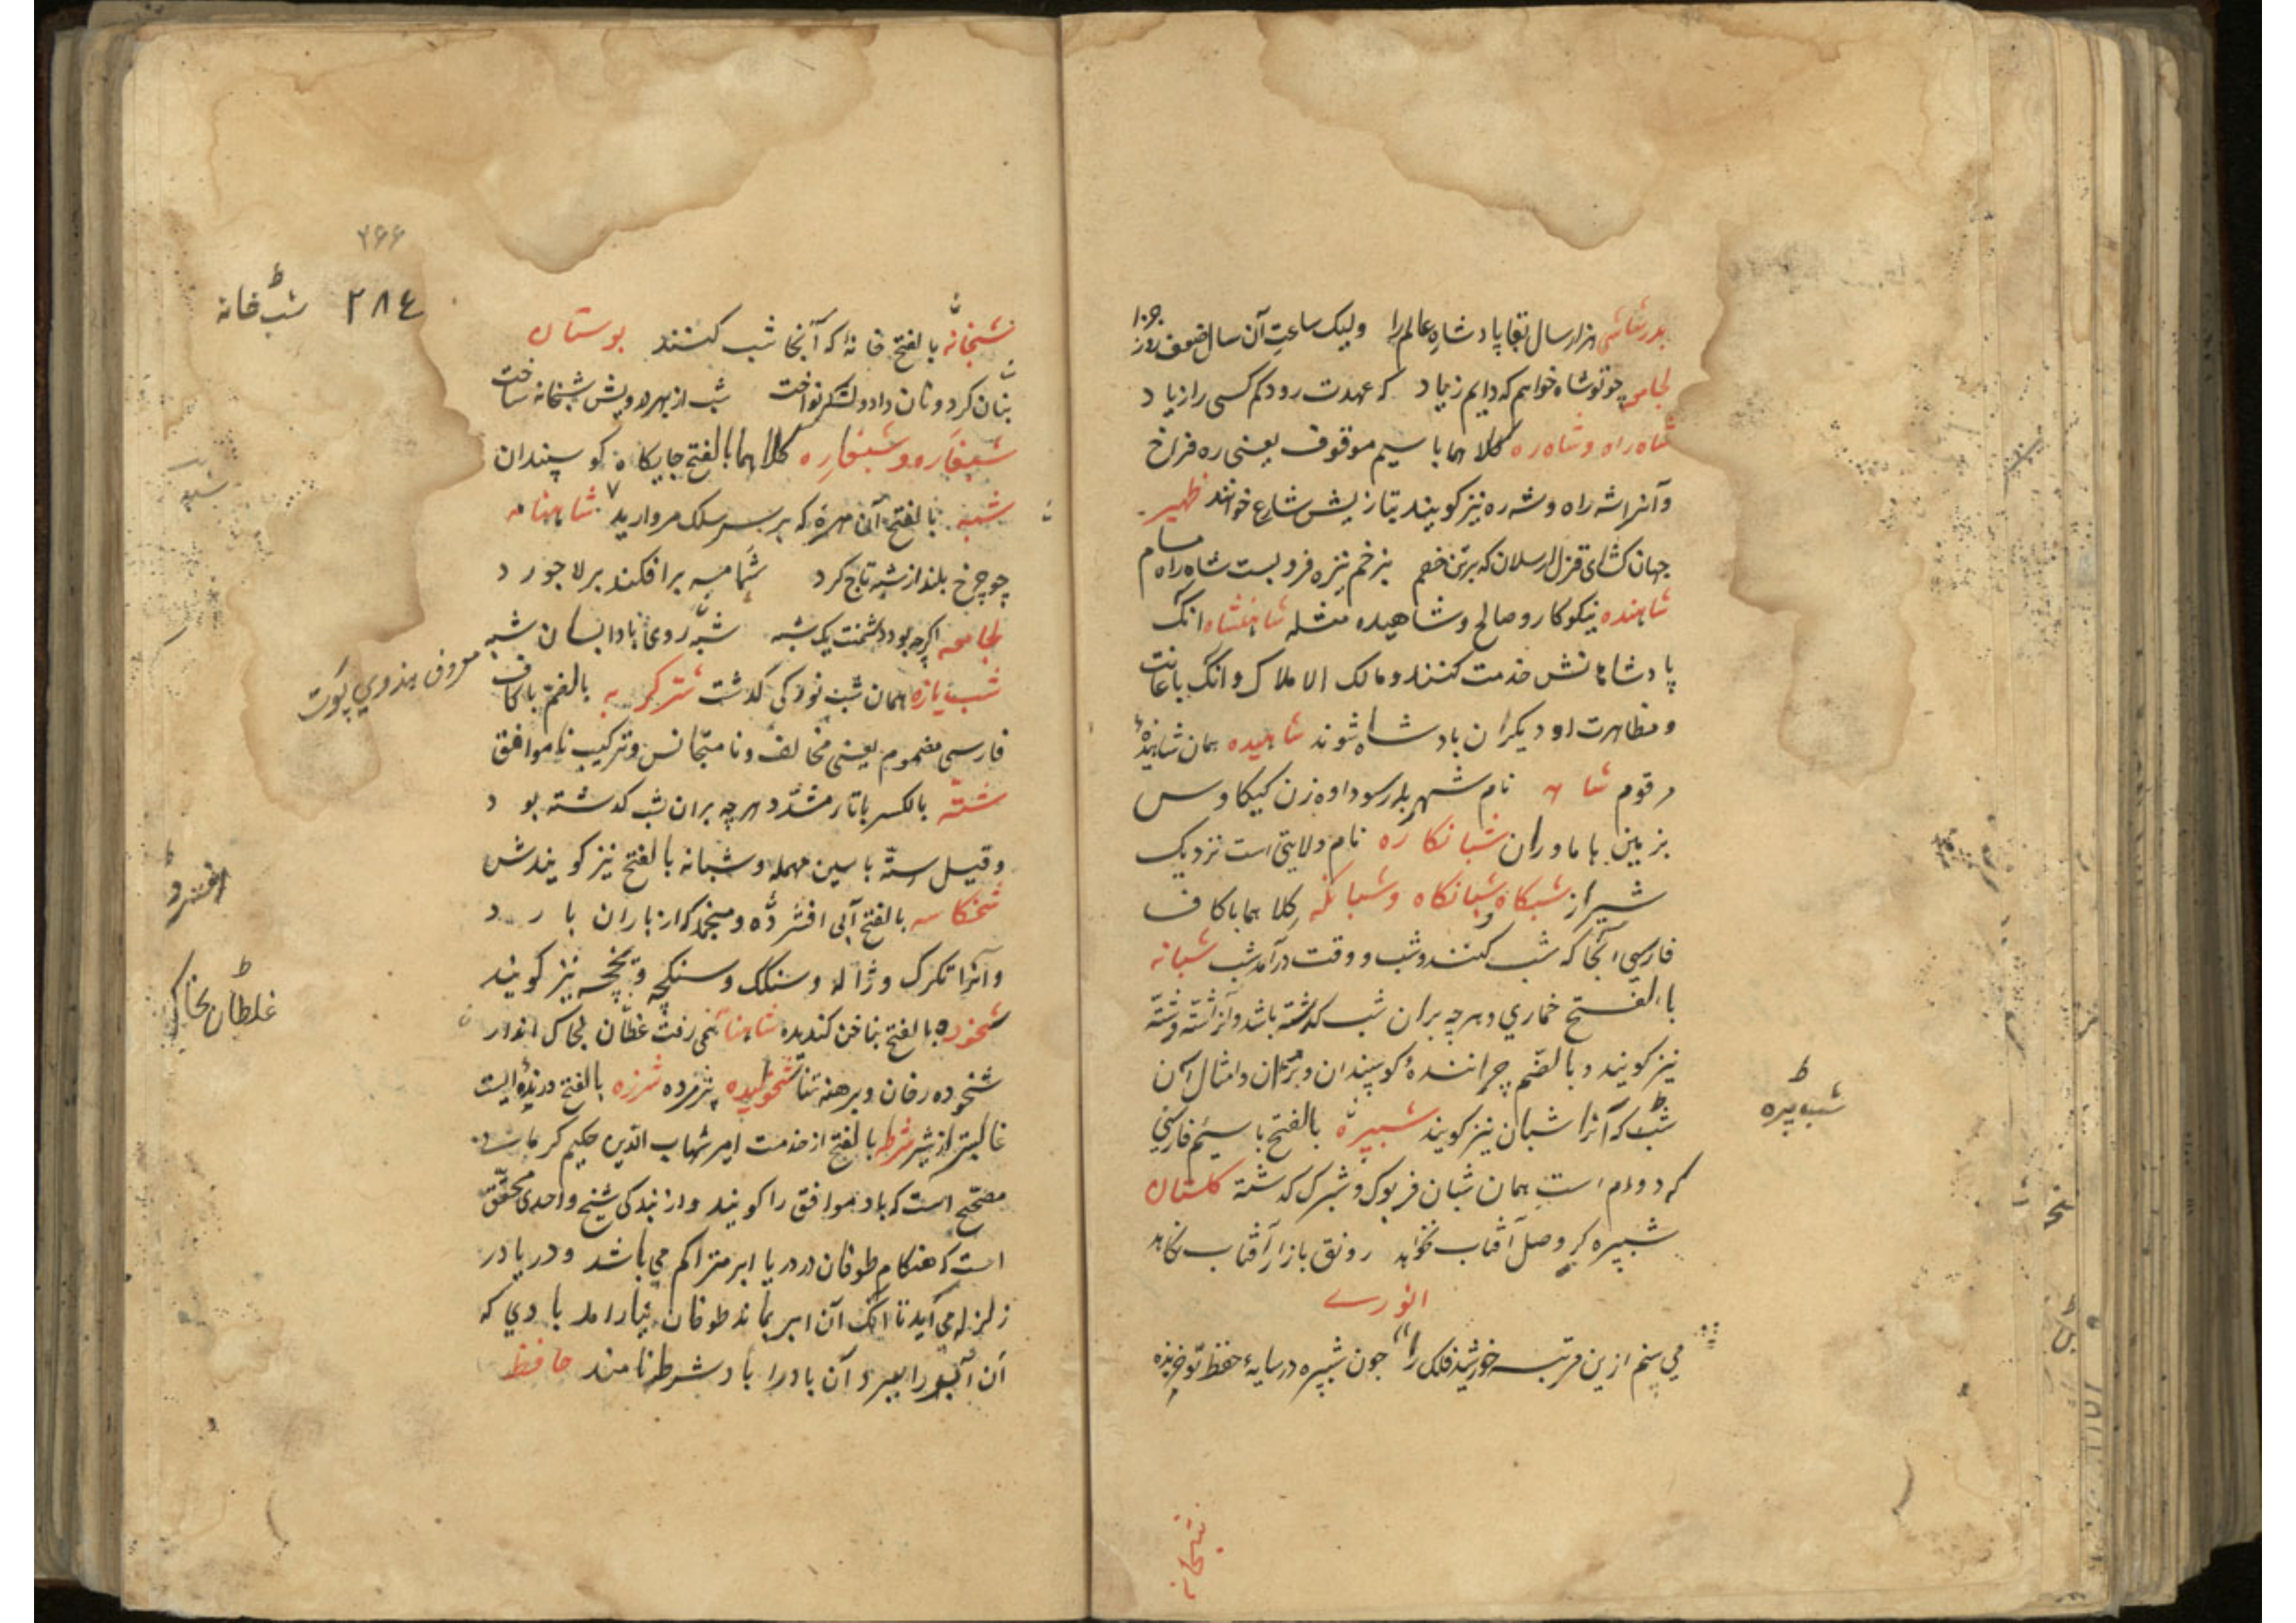 بدرشاشی هزار سال بقا پادشاه عالم را ولیک ساعت آن سال ضعف روز
لجامی چو تو شاه خواهم که دایم زیاد که عهدت رود کم کسی را ز یاد
شاه راه و شاه ره کلاهما با سیم موقوف یعنی ره فراخ
و آنرا شه راه و شه ره نیز کویند بتازیش شارع خوانند ظهیر
جهان کشای قزل ارسلان که بر تن خصم بزخم نیزه فرو بست شاه راه مسام
شاهنده نیکوکار و صالح و شاهیده مثله شاهنشاه انک
پادشاهانش خدمت کنند و مالک الاملاک و انک باعانت
و مظاهرت او دیکران پادشاه شوند شاهیده همان شاهنده
مرقوم شا نام شهر پدر سودا وه زن کیکاوس
بزمین هاماوران شبانکاره نام ولایتی است نزدیک
شیراز شبکاه و شبانکاه و شبانکه کلاهما با کاف
فارسی آنجا که شب کنند و شب و وقت درآمد شب شبانه
بالفتح خماری و هرچه بران شب کذشته باشد و شته
نیز کویند و بالضم چرانندهٔ کوسپندان و بزان و امثال آن
شب که آنرا شبان نیز کویند شبپره بالفتح با سیم فارسی
که دوام است همان شبان فریوک و شبرک کذشته کلستان
شبپره کر وصل آفتاب نخواهد رونق بازار آفتاب نکاهد
انوری
می بینم ازین مرتبه خورشید فلک را چون شبپره در سایهٔ حفظ تو خزیده
شبخانه
شب پره
شبخانه بالفتح خانهٔ که آنجا شب کنند بوستان
بنان کرد و نان داد و لشکر نواخت شب از بهر درویش شبخانه ساخت
شبغاره و شبغاره کلاهما بالفتح جایکاه کوسپندان
شبه بالفتح آن مهره که بر سر سلک مروارید شاهنامه
چو چرخ بلند از شبه تاج کرد شمامه برافکند بر لاجورد
لجامعه اکرچه بود دشمنت یک شبه شبه روی بادا بسان شبه
شب یازه همان شب نوزکی کذشت شترکربه بالضم با کاف
فارسی مضموم یعنی مخالف و نامتجانس و ترکیب ناموافق
شته بالکسر با تار مشدد هرچه بران شب کذشته بود
وقیل سته با سین مهمله و شبانه بالفتح نیز کویندش
شخکاسه بالفتح آبی افشرده و منجمد که از باران بارد
و آنرا تکرک و ژاله و سنکک و سنکچه و یخچه نیز کویند
شخوده بالفتح بناخن کنده شاهنا همی رفت غلطان بخاک اندر
شخوده رخان و برهنه تنا شخولیده پژمرده شرزه بالفتح درندهٔ ایست
غالبتر از شیر شرط بالفتح از خدمت امیر شهاب الدین حکیم کرمانی
مصحح است که باد موافق را کویند و از بندکی شیخ واحدی محقق
است که هنکام طوفان در دریا ابر متراکم می باشد و در یا در
زلزله می آید تا انک آن ابر بماند طوفان نیارامد بادی که
آن ابر را ببرد آن باد را باد شرطه نامند حافظ
۲۶۶
۲۸٤ شب خانه
معروف بهندوی پوت
افسرد
غلطان بخاک